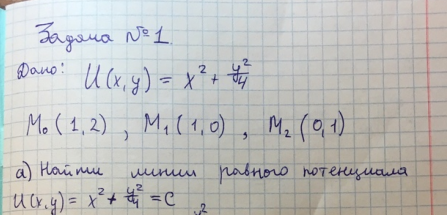 Задача №1.
Дано: U(x,y) = x² + y²/4
M₀(1,2), M₁(1,0), M₂(0,1)
а) Найти линии равного потенциала
U(x,y) = x² + y²/4 = C